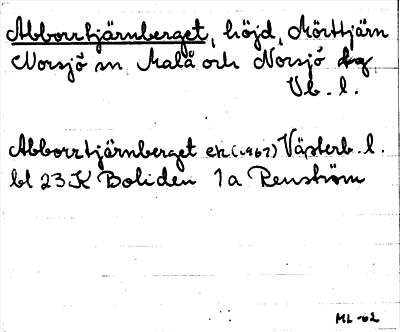 Abborrtjärnberget, höjd, Mörttjärn
Norsjö sn Malå och Norsjö
Vb. l.
Abborrtjärnberget ek (1967) Västerb. l.
bl 23 K Boliden 1a Renström
ML -62